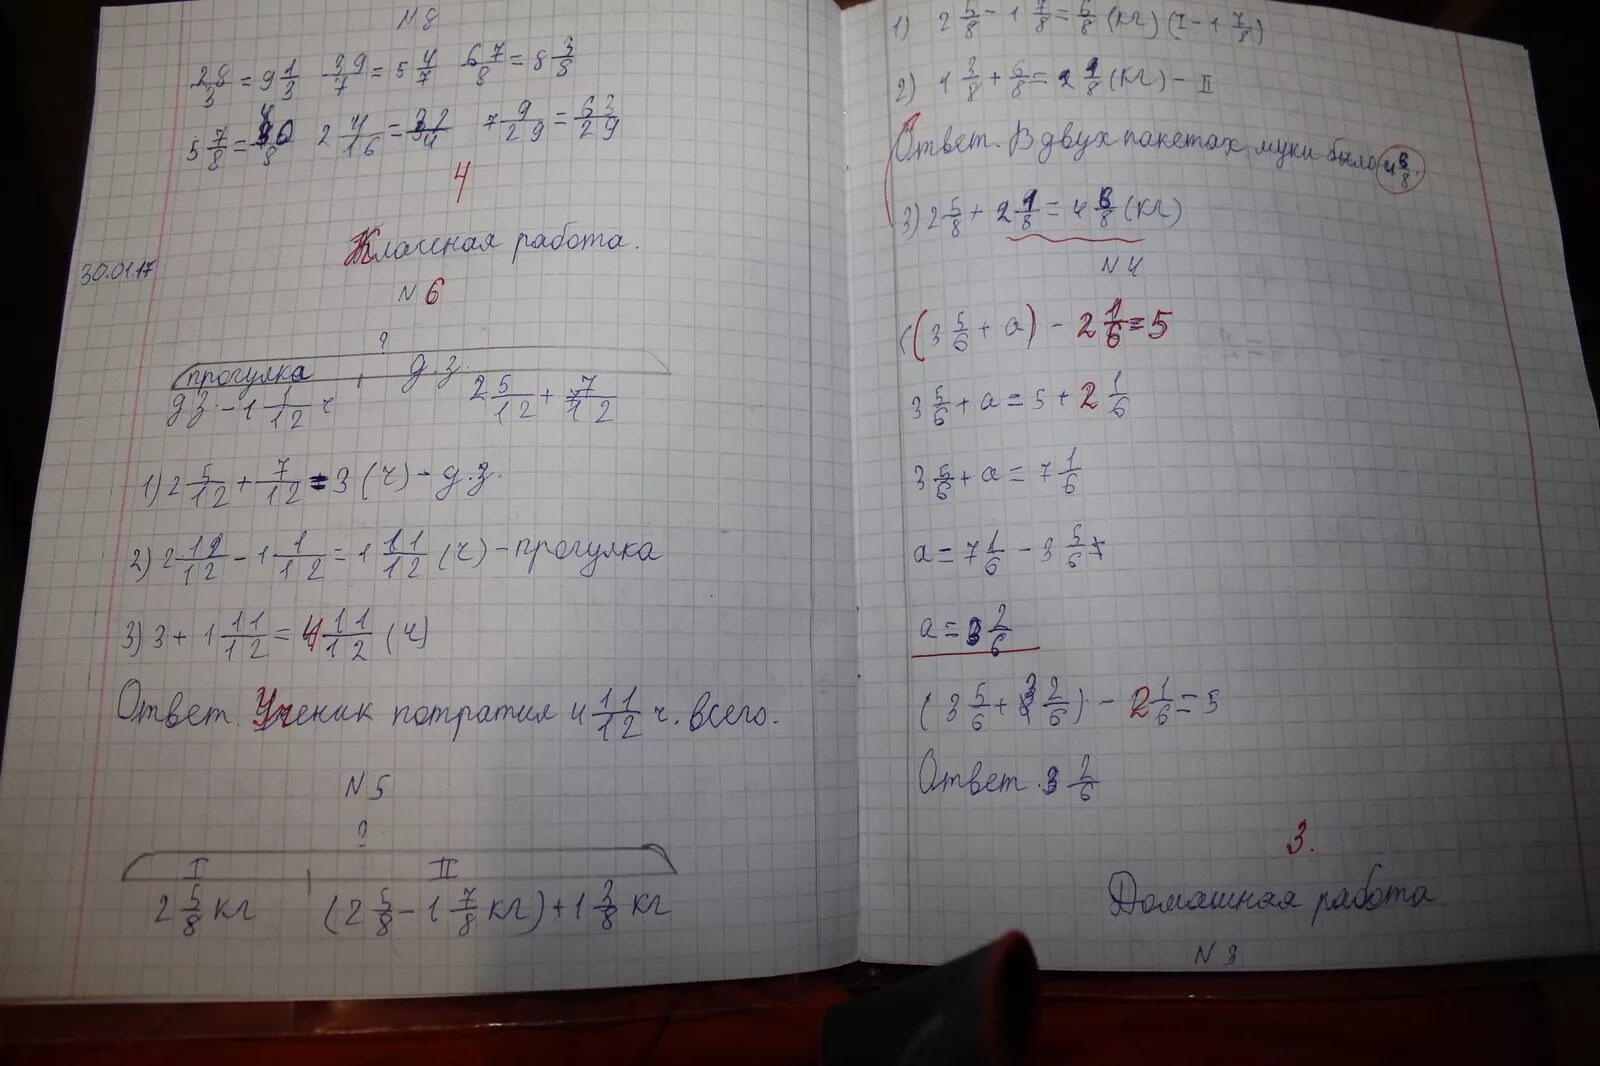 N 8
28/3 = 9 1/3 39/7 = 5 4/7 67/8 = 8 3/8
5 7/8 = /8 2 4/16 = 32/4 7 9/29 = 63/29
4
30.01.17
Классная работа.
N 6
?
прогулка д.з.
д.з. - 1 1/12 ч 2 5/12 + 7/12
1) 2 5/12 + 7/12 = 3 (ч) - д.з.
2) 2 12/12 - 1 1/12 = 1 11/12 (ч) - прогулка
3) 3 + 1 11/12 = 4 11/12 (ч)
Ответ. Ученик потратил 4 11/12 ч. всего.
N 5
?
I II
2 5/8 кг (2 5/8 - 1 7/8 кг) + 1 3/8 кг
1) 2 5/8 - 1 7/8 = 6/8 (кг) (I - 1 7/8)
2) 1 3/8 + 6/8 = 2 1/8 (кг) - II
Ответ. В двух пакетах муки было 4 6/8.
3) 2 5/8 + 2 1/8 = 4 6/8 (кг)
N 4
((3 5/6 + a) - 2 1/6 = 5
3 5/6 + a = 5 + 2 1/6
3 5/6 + a = 7 1/6
a = 7 1/6 - 3 5/6
a = 3 2/6
(3 5/6 + 3 2/6) - 2 1/6 = 5
Ответ. 3 2/6
3.
Домашная работа.
N 3